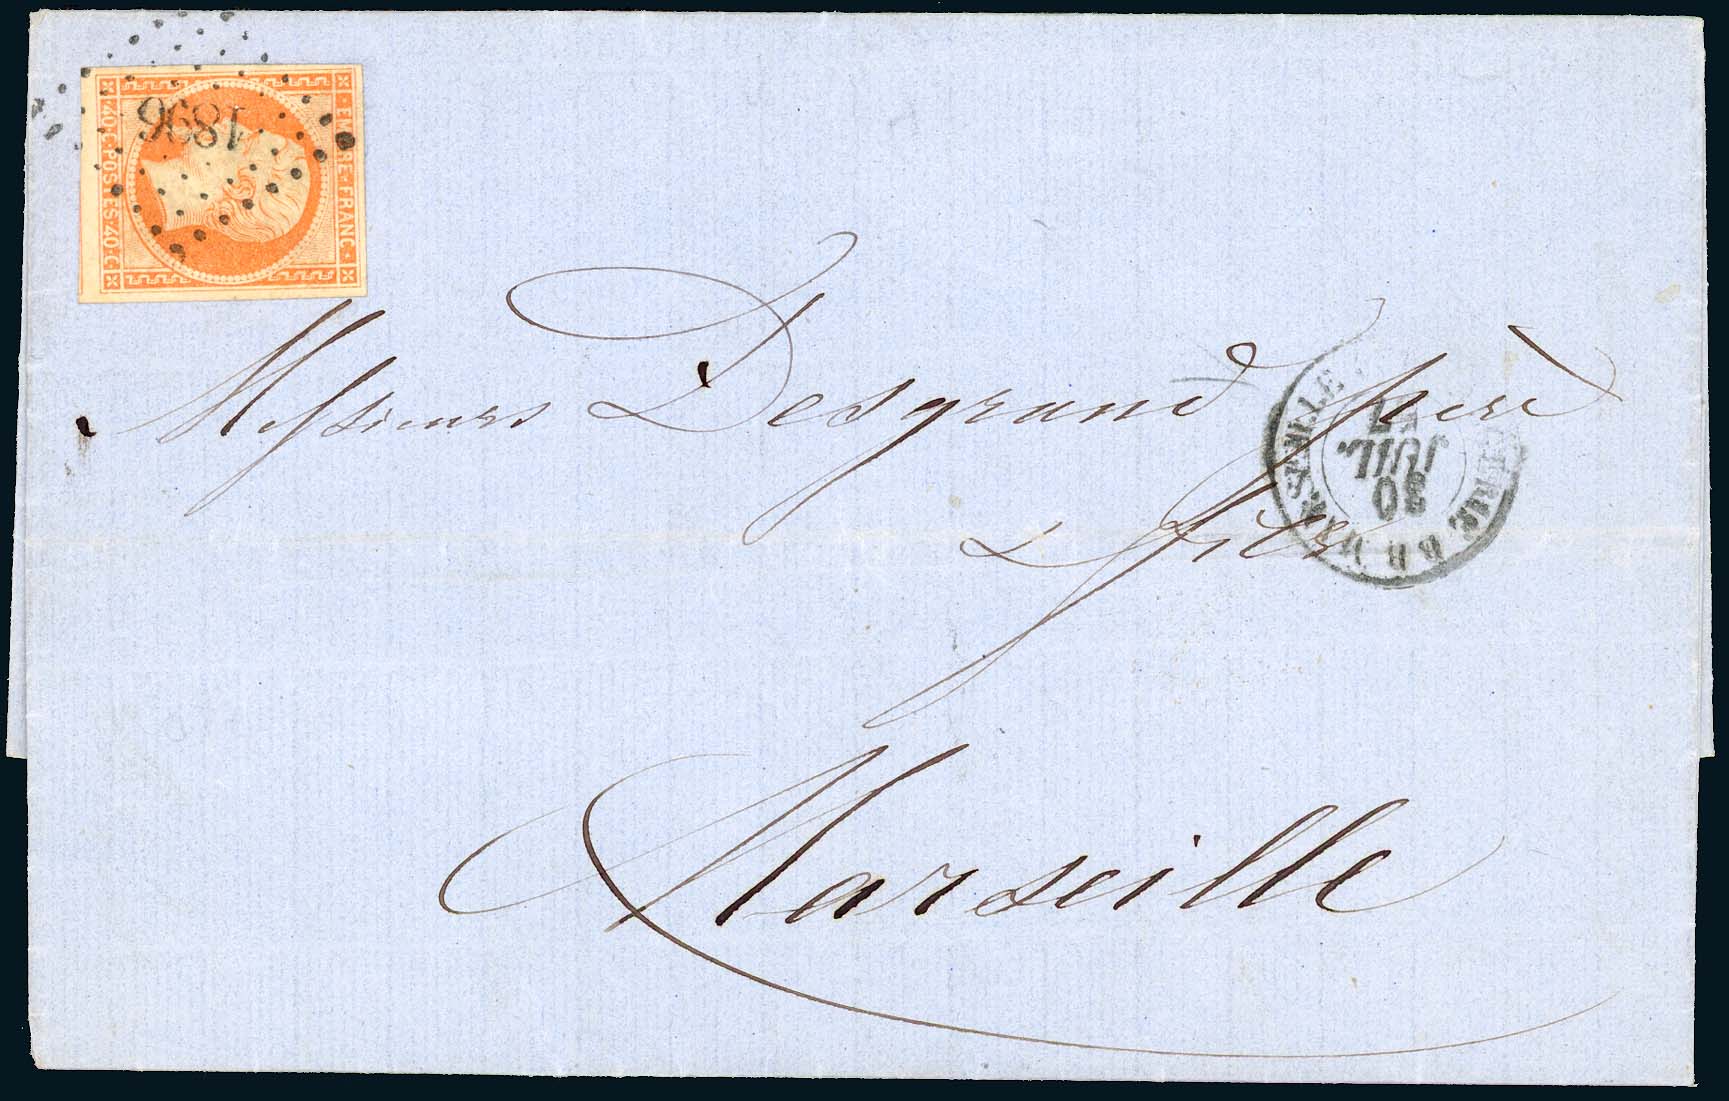 1896
EMPIRE FRANC
40 C POSTES 40 C
Messieurs Desgrand père
& fils
Marseille
30
JUIL.
57
MARSEILLE